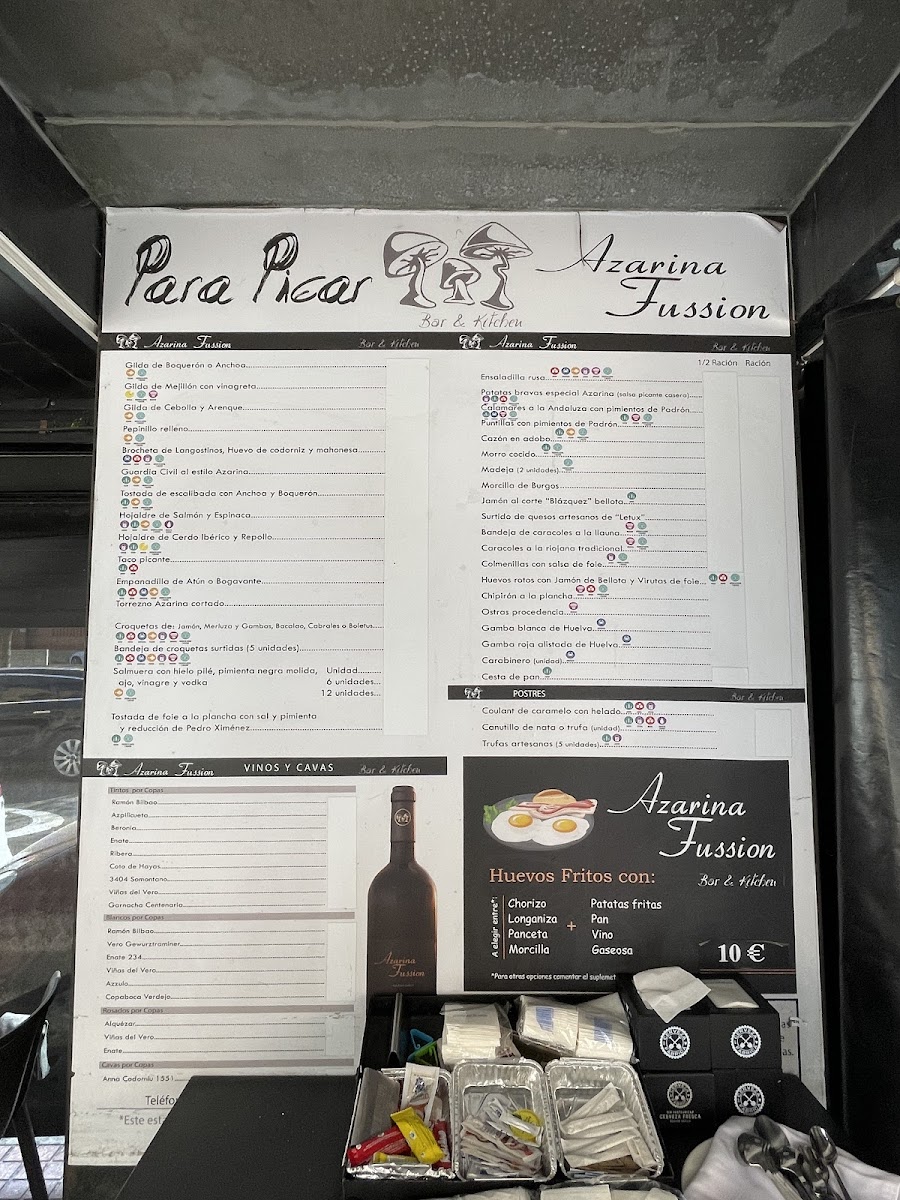 Para Picar
Bar & Kitchen
Azarina
Fussion
Azarina Fussion
Bar & Kitchen
Gilda de Boquerón o Anchoa
Gilda de Mejillón con vinagreta
Gilda de Ceballa y Arenque
Pepinillo relleno
Brocheta de Langostinos, Huevo de codorniz y mahonesa
Guardia Civil al estilo Azarina
Tostada de escalibada con Anchoa y Boquerón
Hojaldre de Salmón y Espinaca
Hojaldre de Cerdo Ibérico y Repollo
Taco picante
Empanadilla de Atún o Bogavante
Torrezno Azarina cortado
Croquetas de: Jamón, Merluza y Gambas, Bacalao, Cabrales o Boletus
Bandeja de croquetas surtidas (5 unidades)
Salmuera con hielo pilé, pimienta negra molida, Unidad
ajo, vinagre y vodka 6 unidades
12 unidades
Tostada de foie a la plancha con sal y pimienta
y reducción de Pedro Ximénez
Azarina Fussion
Bar & Kitchen
1/2 Ración Ración
Ensaladilla rusa
Patatas bravas especial Azarina (salsa picante casero)
Calamares a la Andaluza con pimientos de Padrón
Puntillas con pimientos de Padrón
Cazón en adobo
Morro cocido
Madeja (2 unidades)
Morcilla de Burgos
Jamón al corte "Blázquez" bellota
Surtido de quesos artesanos de "Letux"
Bandeja de caracoles a la llauna
Caracoles a la riojana tradicional
Colmenillas con salsa de foie
Huevos rotos con Jamón de Bellota y Virutas de foie
Chipirón a la plancha
Ostras procedencia
Gamba blanca de Huelva
Gamba roja alistada de Huelva
Carabinero (unidad)
Cesta de pan
POSTRES
Bar & Kitchen
Coulant de caramelo con helado
Canutillo de nata o trufa (unidad)
Trufas artesanas (5 unidades)
Azarina Fussion
VINOS Y CAVAS
Bar & Kitchen
Tintos por Copas
Ramón Bilbao
Azpilicueta
Beronia
Enate
Ribera
Coto de Hayas
3404 Somontano
Viñas del Vero
Garnacha Centenaria
Blancos por Copas
Ramón Bilbao
Vero Gewurztraminer
Enate 234
Viñas del Vero
Azzulo
Copaboca Verdejo
Rosados por Copas
Alquézar
Viñas del Vero
Enate
Cavas por Copas
Anna Codorniu 1551
Teléfo
*Este est
Azarina
Fussion
Azarina
Fussion
Bar & Kitchen
Huevos Fritos con:
A elegir entre*:
Chorizo
Longaniza
Panceta
Morcilla
+
Patatas fritas
Pan
Vino
Gaseosa
10 €
*Para otras opciones comentar el suplemet
CERVEZA FRESCA